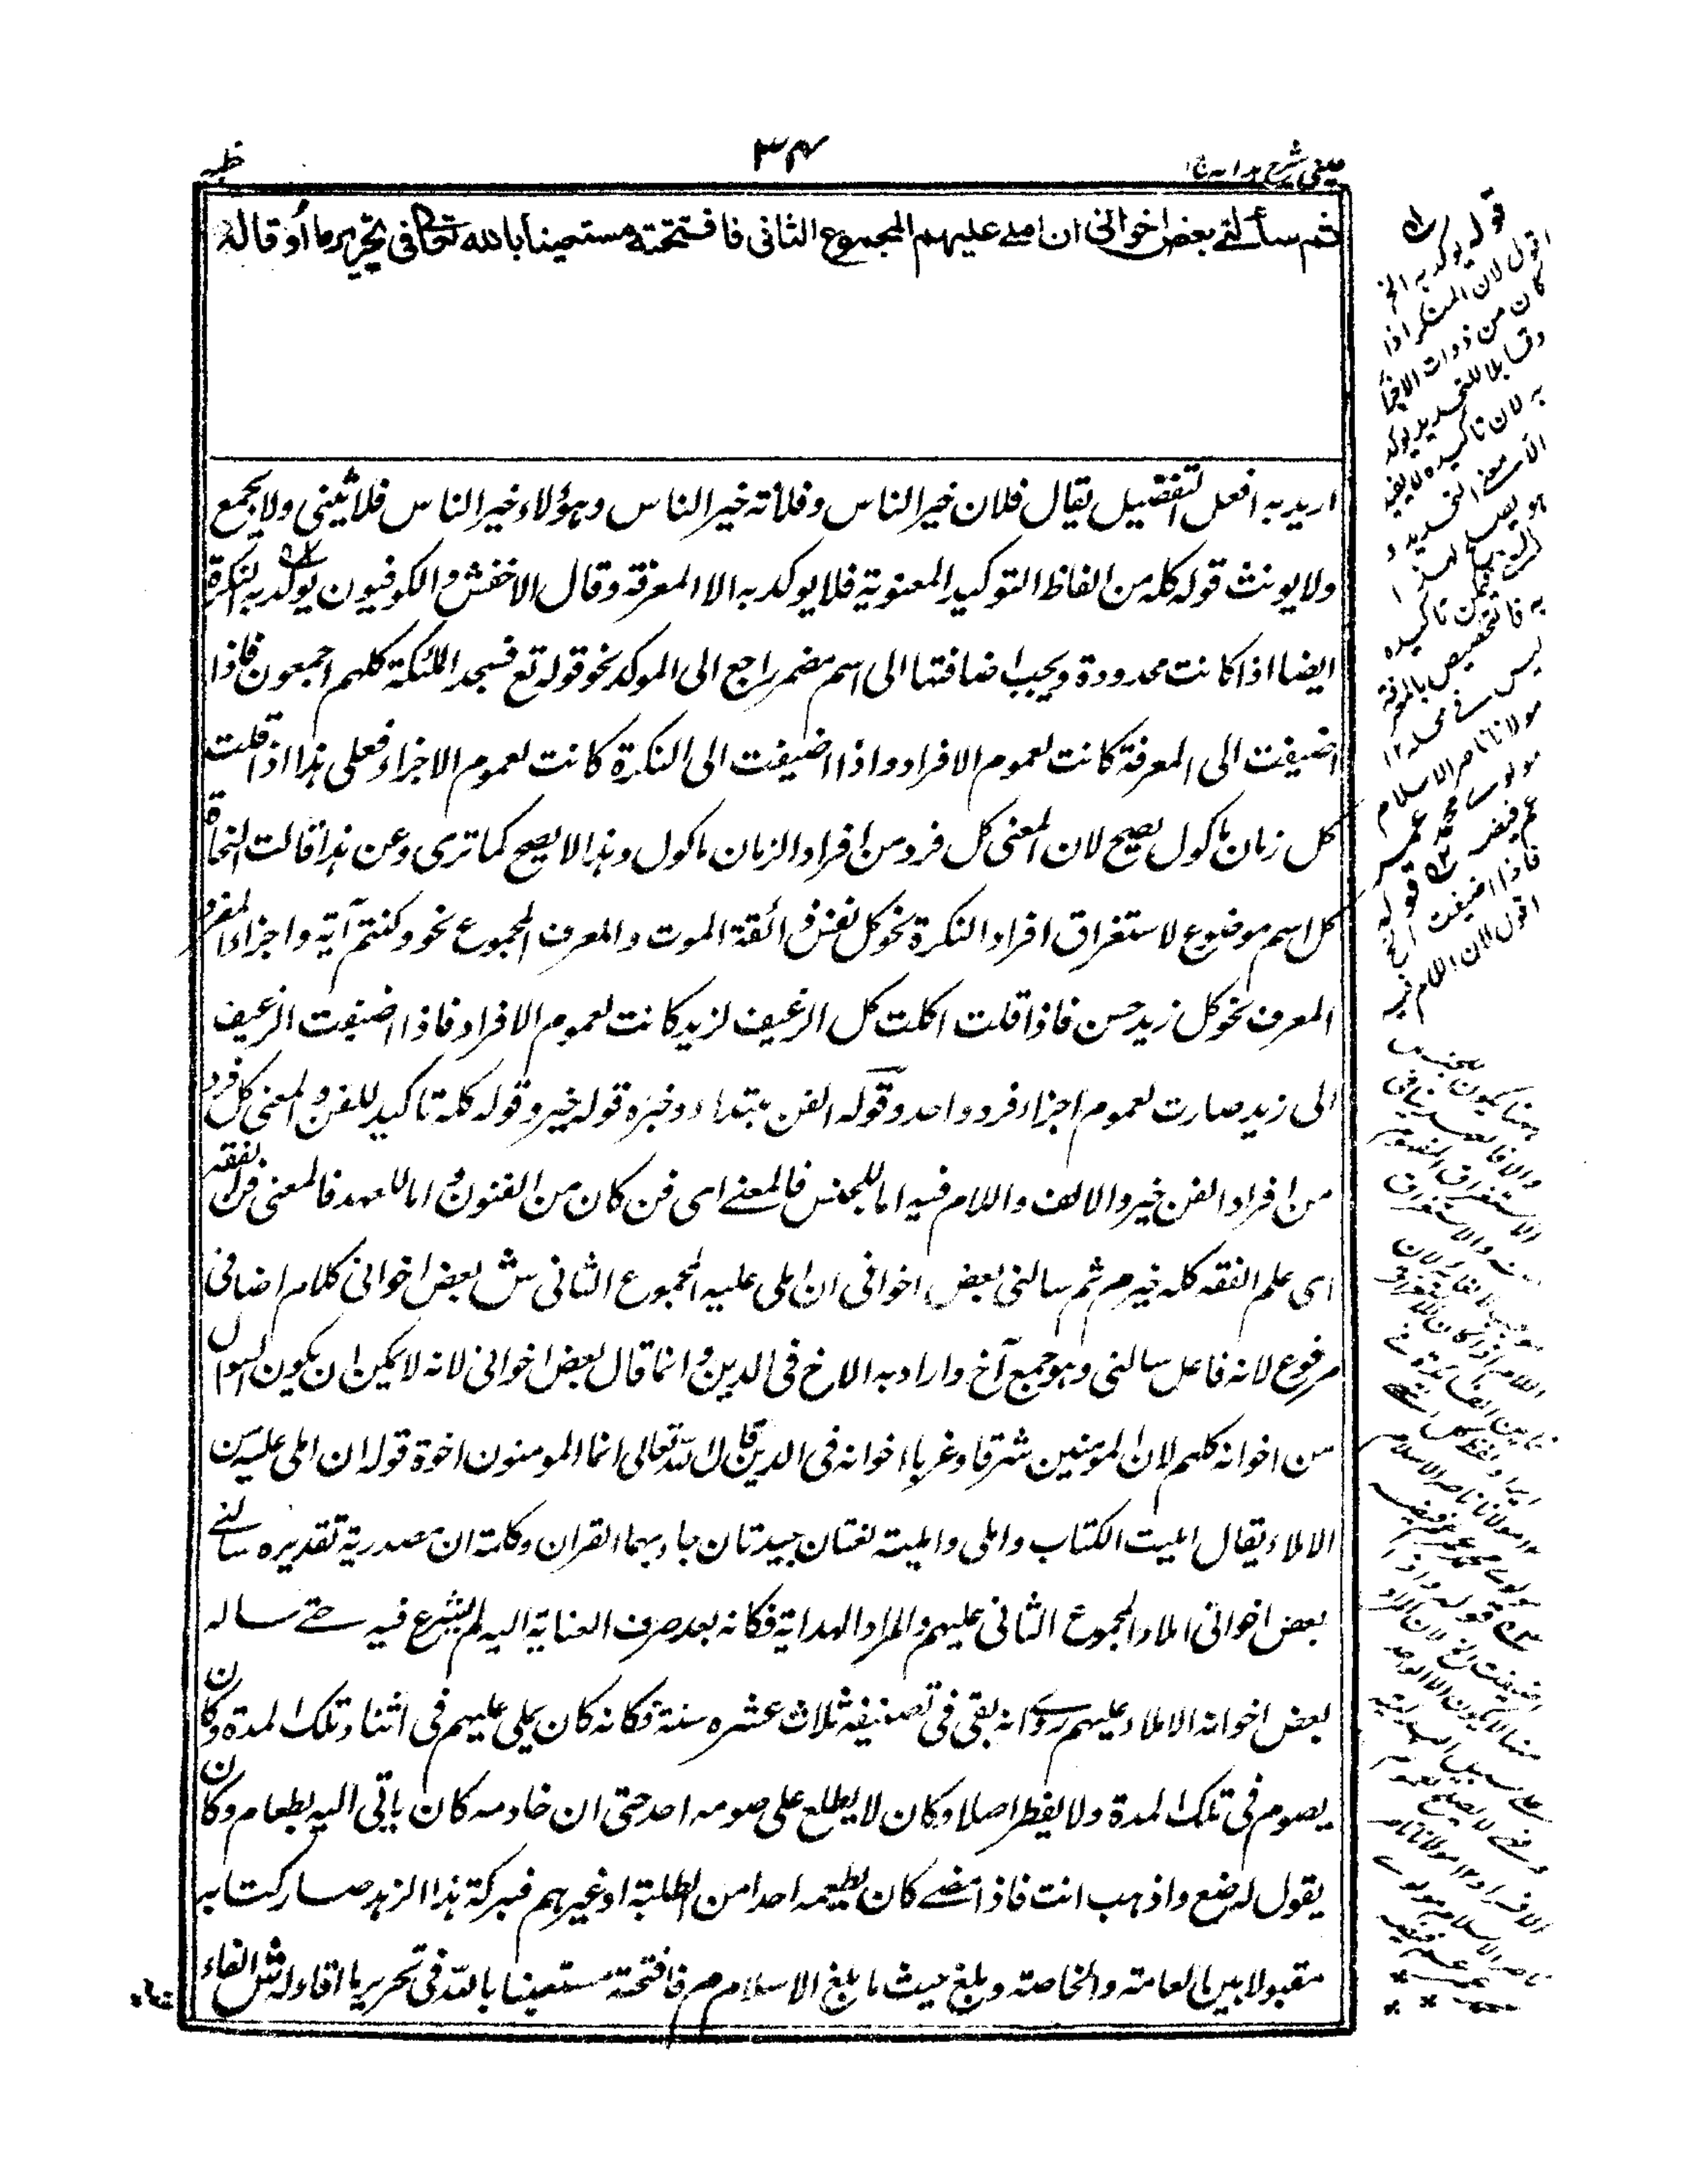 عینی شرح هدایه ج ۱
۳۴
خطبه
ثم سألنی بعض اخوانی ان املی علیهم المجموع الثانی فافتتحته مستعینا بالله تعالی فی تحریر ما أقاوله
ارید به افعل التفضیل یقال فلان خیر الناس وفلانة خیر الناس وهؤلاء خیر الناس فلا یثنی ولا یجمع
ولا یونث قوله کله من الفاظ التوکید المعنویة فلا یوکد به الا المعرفة وقال الاخفش والکوفیون یوکد به النکرة
ایضا اذا کانت محدودة ویجب اضافتها الی اسم مضمر راجع الی الموکد نحو قوله تع فسجد الملئکة کلهم اجمعون فاذا
اضیفت الی المعرفة کانت لعموم الافراد واذا اضیفت الی النکرة کانت لعموم الاجزاء فعلی هذا اذا قلت
کل زمان ماکول یصح لان المعنی کل فرد من افراد الزمان ماکول وهذا لا یصح کما تری وعن هذا قالت النحاة
کل اسم موضوع لاستغراق افراد النکرة نحو کل نفس ذائقة الموت والمعرف المجموع نحو وکلتم آتیه واجزاء المفرد
المعرف نحو کل زید حسن فاذا قلت اکلت کل الرغیف لزید کانت لعموم الافراد فاذا اضیفت الرغیف
الی زید صارت لعموم اجزاء فرد واحد وقوله الفن مبتداء وخبره قوله خیر وقوله کله تاکید للفن والمعنی کل فرد
من افراد الفن خیر والالف واللام فیه اما للجنس فالمعنے ای فن کان من الفنون و اما للعهد فالمعنی فن الفقه
ای علم الفقه کله خیر م ثم سالنی بعض اخوانی ان املی علیه المجموع الثانی ش بعض اخوانی کلام اضافی
مرفوع لانه فاعل سالنی وهو جمع آخ واراد به الاخ فی الدین وانما قال بعض اخوانی لانه لا یمکن ان یکون السوال
من اخوانه کلهم لان المومنین شرقا وغربا اخوانه فی الدین قال الله تعالی انما المومنون اخوة قوله ان املی علیه من
الاملاء یقال املیت الکتاب واملی وامليته لغتان جیدتان جاء بهما القران وکلمة ان مصدریة تقدیره سالنے
بعض اخوانی املاء المجموع الثانی علیهم والمراد الهدایة فکانه بعد صرف العنایة الیه لم یشرع فیه حتے ساله
بعض اخوانه الاملاء علیهم روی انه بقی فی تصنیفه ثلاث عشره سنة فکانه کان یملی علیهم فی اثناء تلک المدة وکان
یصوم فی تلک المدة ولا یفطر اصلا وکان لا یطلع علی صومه احد حتی ان خادمه کان یاتی الیه بطعام وکان
یقول له ضع واذهب انت فاذا مضے کان یطعمه احدا من الطلبة او غیرهم فببرکة هذا الزهد صار کتابه
مقبولا بین العامة والخاصة وبلغ حیث ما بلغ الاسلام م فافتتحته مستعینا بالله فی تحریر ما اقاوله ش الفاء
قوله یوکد به الخ
اقول لان المنکر اذا
کان من ذوات الاجزاء
وقابلا للتحدید یوکد
به لان تاکیده لا یفید
الا معنے التحدید و
هو یصلح لهذا
فیمکن تاکیده
به فالتخصیص بالمعرفة
لیس فے محله ۱۲
مولانا ناصر الاسلام
مولوے محمد عمر
عم فیضه
قوله
فاذا اضیفت الخ
اقول لان اللام فیه